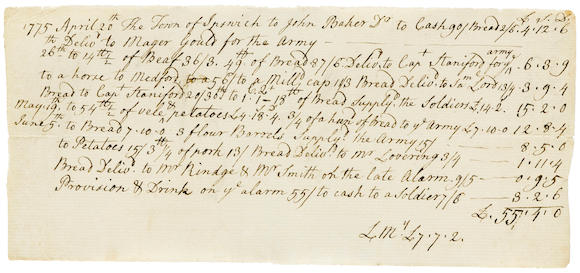 £ S. D
1775 April 20th The Town of Ipswich to John Baker Dr to Cash 90/ Bread 2/6. 4.12.6
Delivd to Major Gould for the Army
26th to 14 lb ½ of Beaf 36/3. 49 lb of Bread 87/6 Delivd to Capt Staniford for ye army 6.3.9
to a horse to Medford to a Milk cap 1/3 Bread Delivd to Saml Lord 13/4 3.9.4
Bread to Capt Staniford 20/ of Bread Supplyd the Soldiers £14.2. 15.2.0
May 19 to 54 lb ½ of vele & petatoes £4.18.4. 3/4 of a hund of Bread to ye Army £7.10.0 12.8.4
June 5th to Bread 7.10.0. 3 flour Barrels Supplyd the Army 15/ 8.5.0
to Potatoes 15/ 3 lb ¼ of pork 13/ Bread Delivd to Mr Lovering 3/4 1.11.4
Bread Delivd to Mr Kindge & Mr Smith on the late Alarm 9/5 0.9.5
Provision & Drink on ye alarm 55/ to cash to a Soldier 7/6 3.2.6
£. 55.4.0
£ My £7.7.2.